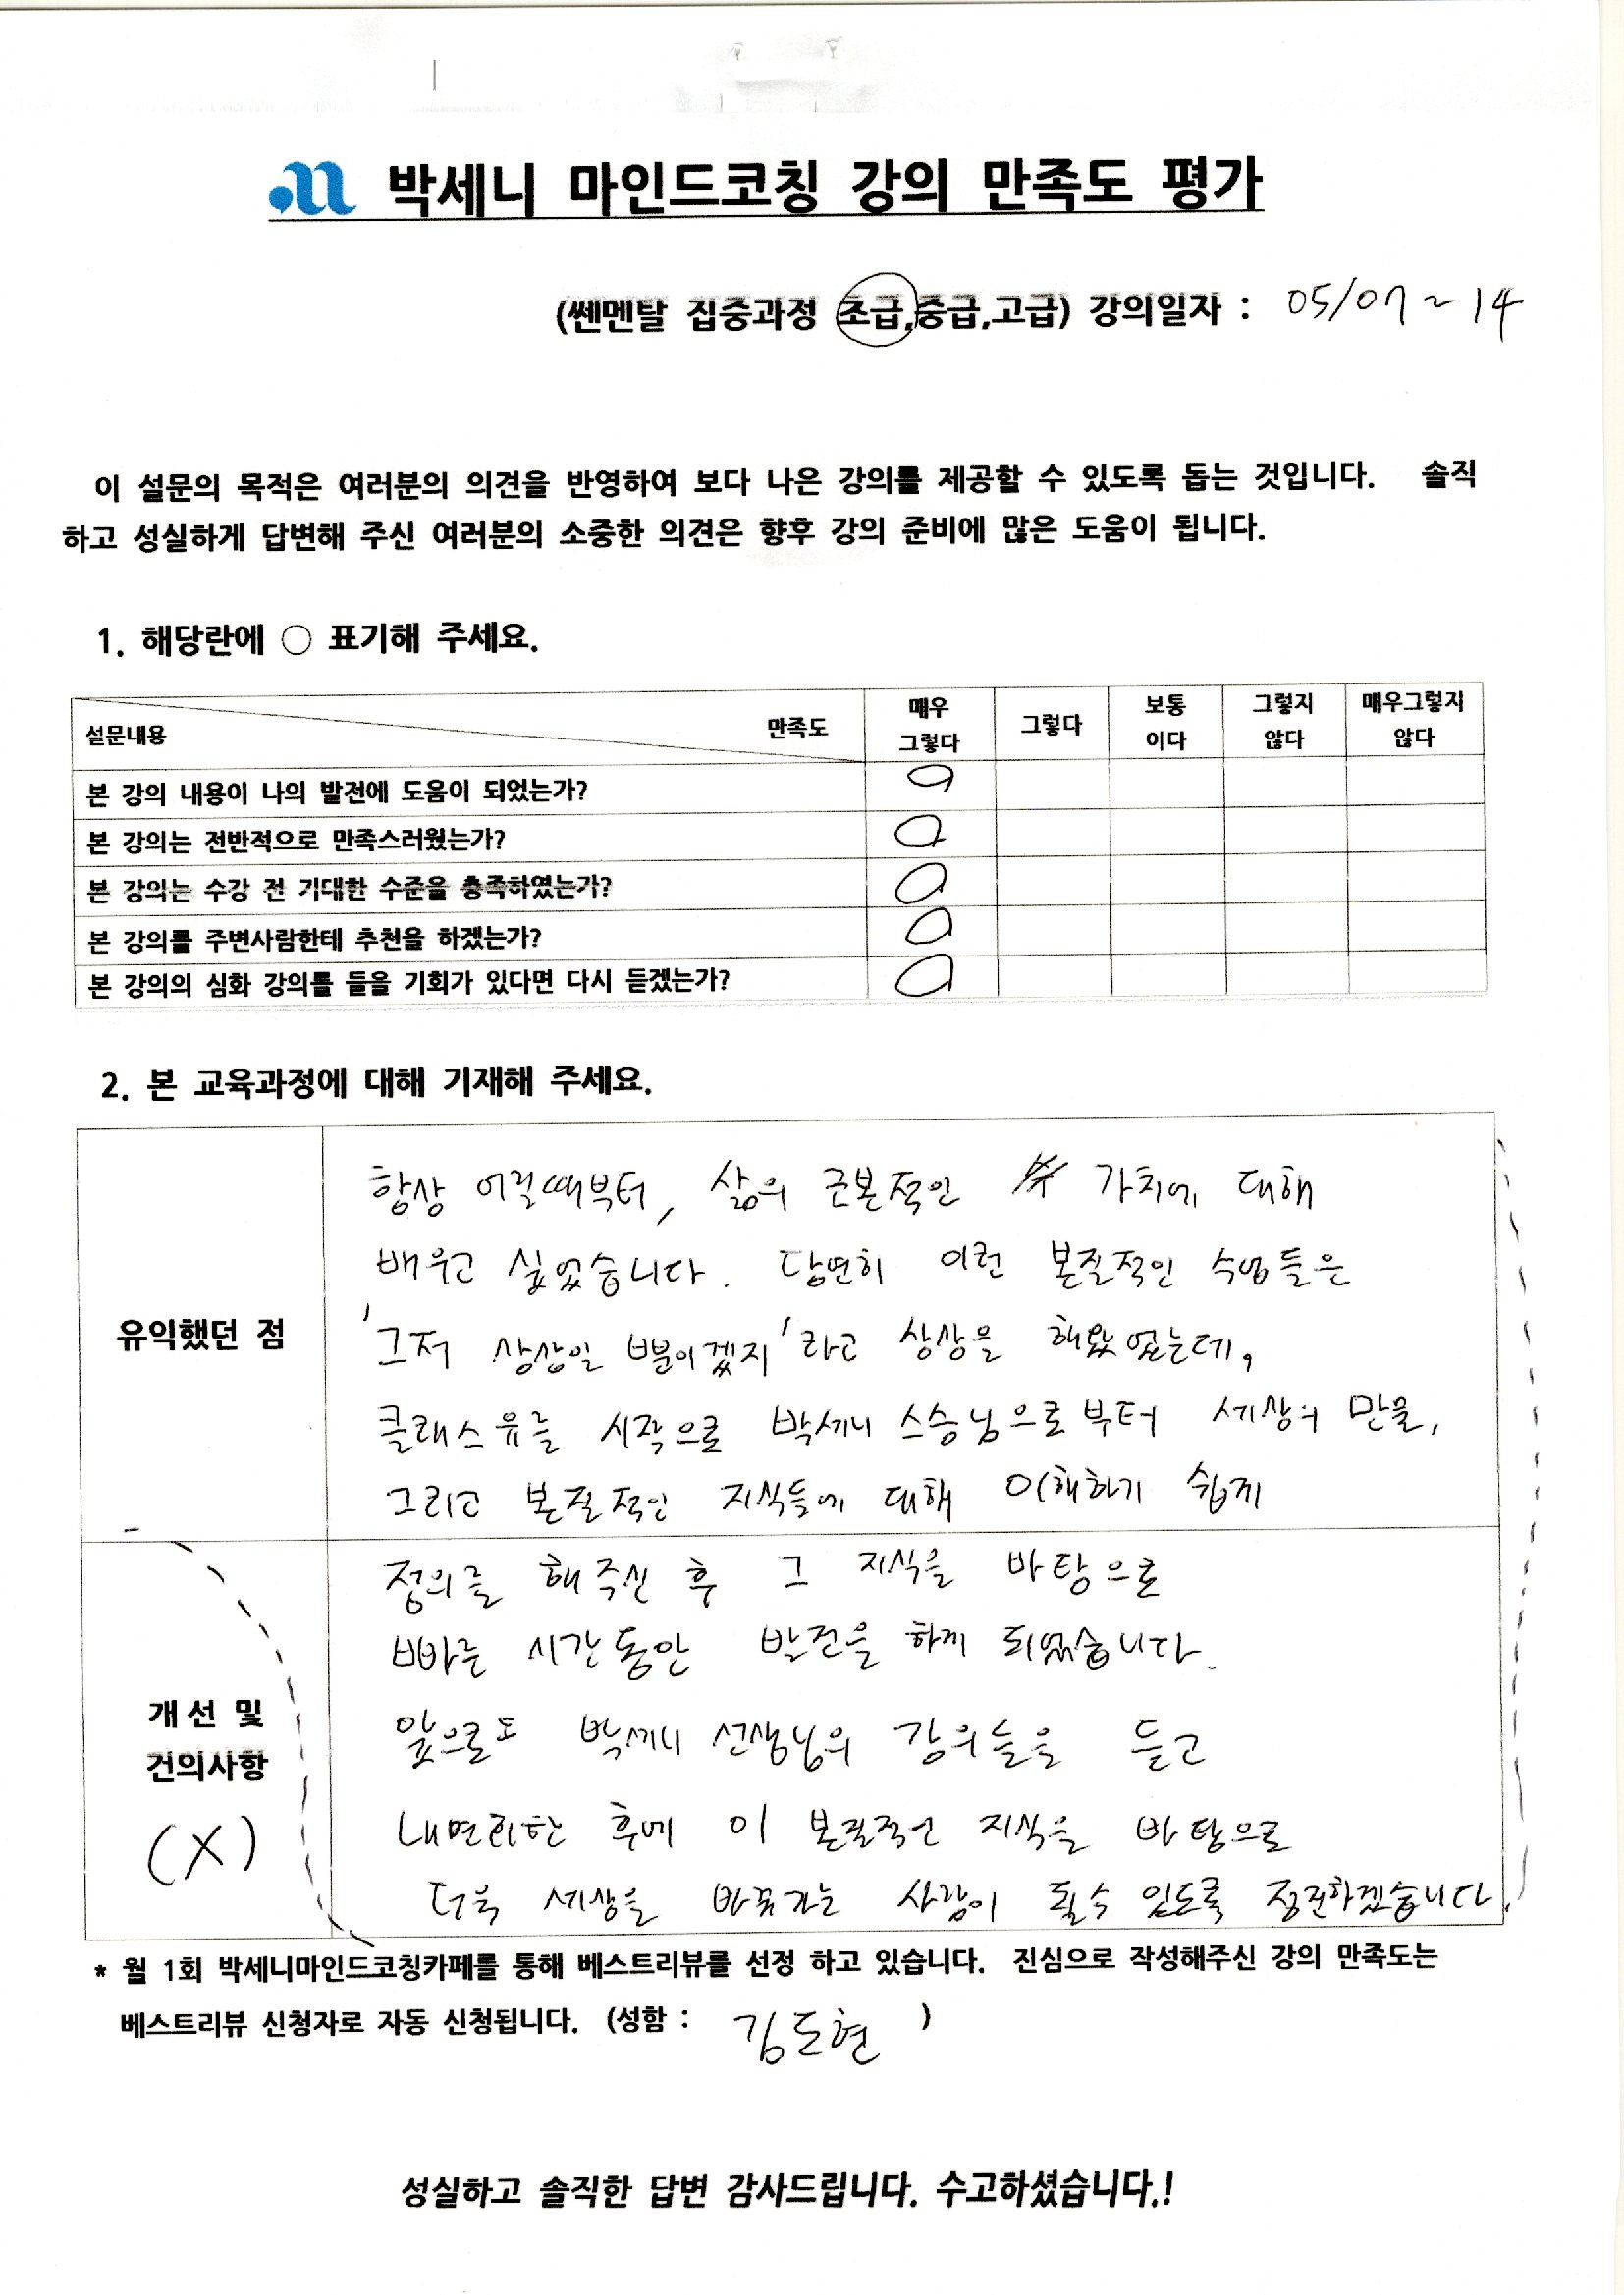 박세니 마인드코칭 강의 만족도 평가
(쎈멘탈 집중과정 초급,중급,고급) 강의일자 : 05/07 ~ 14
이 설문의 목적은 여러분의 의견을 반영하여 보다 나은 강의를 제공할 수 있도록 돕는 것입니다. 솔직
하고 성실하게 답변해 주신 여러분의 소중한 의견은 향후 강의 준비에 많은 도움이 됩니다.
1. 해당란에 ○ 표기해 주세요.
설문내용 만족도 매우 그렇다 그렇다 보통 이다 그렇지 않다 매우그렇지 않다
본 강의 내용이 나의 발전에 도움이 되었는가? O
본 강의는 전반적으로 만족스러웠는가? O
본 강의는 수강 전 기대한 수준을 충족하였는가? O
본 강의를 주변사람한테 추천을 하겠는가? O
본 강의의 심화 강의를 들을 기회가 있다면 다시 듣겠는가? O
2. 본 교육과정에 대해 기재해 주세요.
유익했던 점
항상 어릴때부터, 삶의 근본적인 가치에 대해
배우고 싶었습니다. 당연히 이런 본질적인 수업들은
'그저 상상일 뿐이겠지'라고 상상을 해왔었는데,
클래스유를 시작으로 박세니 스승님으로부터 세상의 만물,
그리고 본질적인 지식들에 대해 이해하기 쉽게
개선 및
건의사항
(X)
정의를 해주신 후 그 지식을 바탕으로
빠른 시간동안 발전을 하게 되었습니다.
앞으로도 박세니 선생님의 강의들을 듣고
내면화한 후에 이 본질적인 지식을 바탕으로
더욱 세상을 바꿔가는 사람이 될수 있도록 정진하겠습니다.
* 월 1회 박세니마인드코칭카페를 통해 베스트리뷰를 선정 하고 있습니다. 진심으로 작성해주신 강의 만족도는
베스트리뷰 신청자로 자동 신청됩니다. (성함 : 김도현 )
성실하고 솔직한 답변 감사드립니다. 수고하셨습니다.!